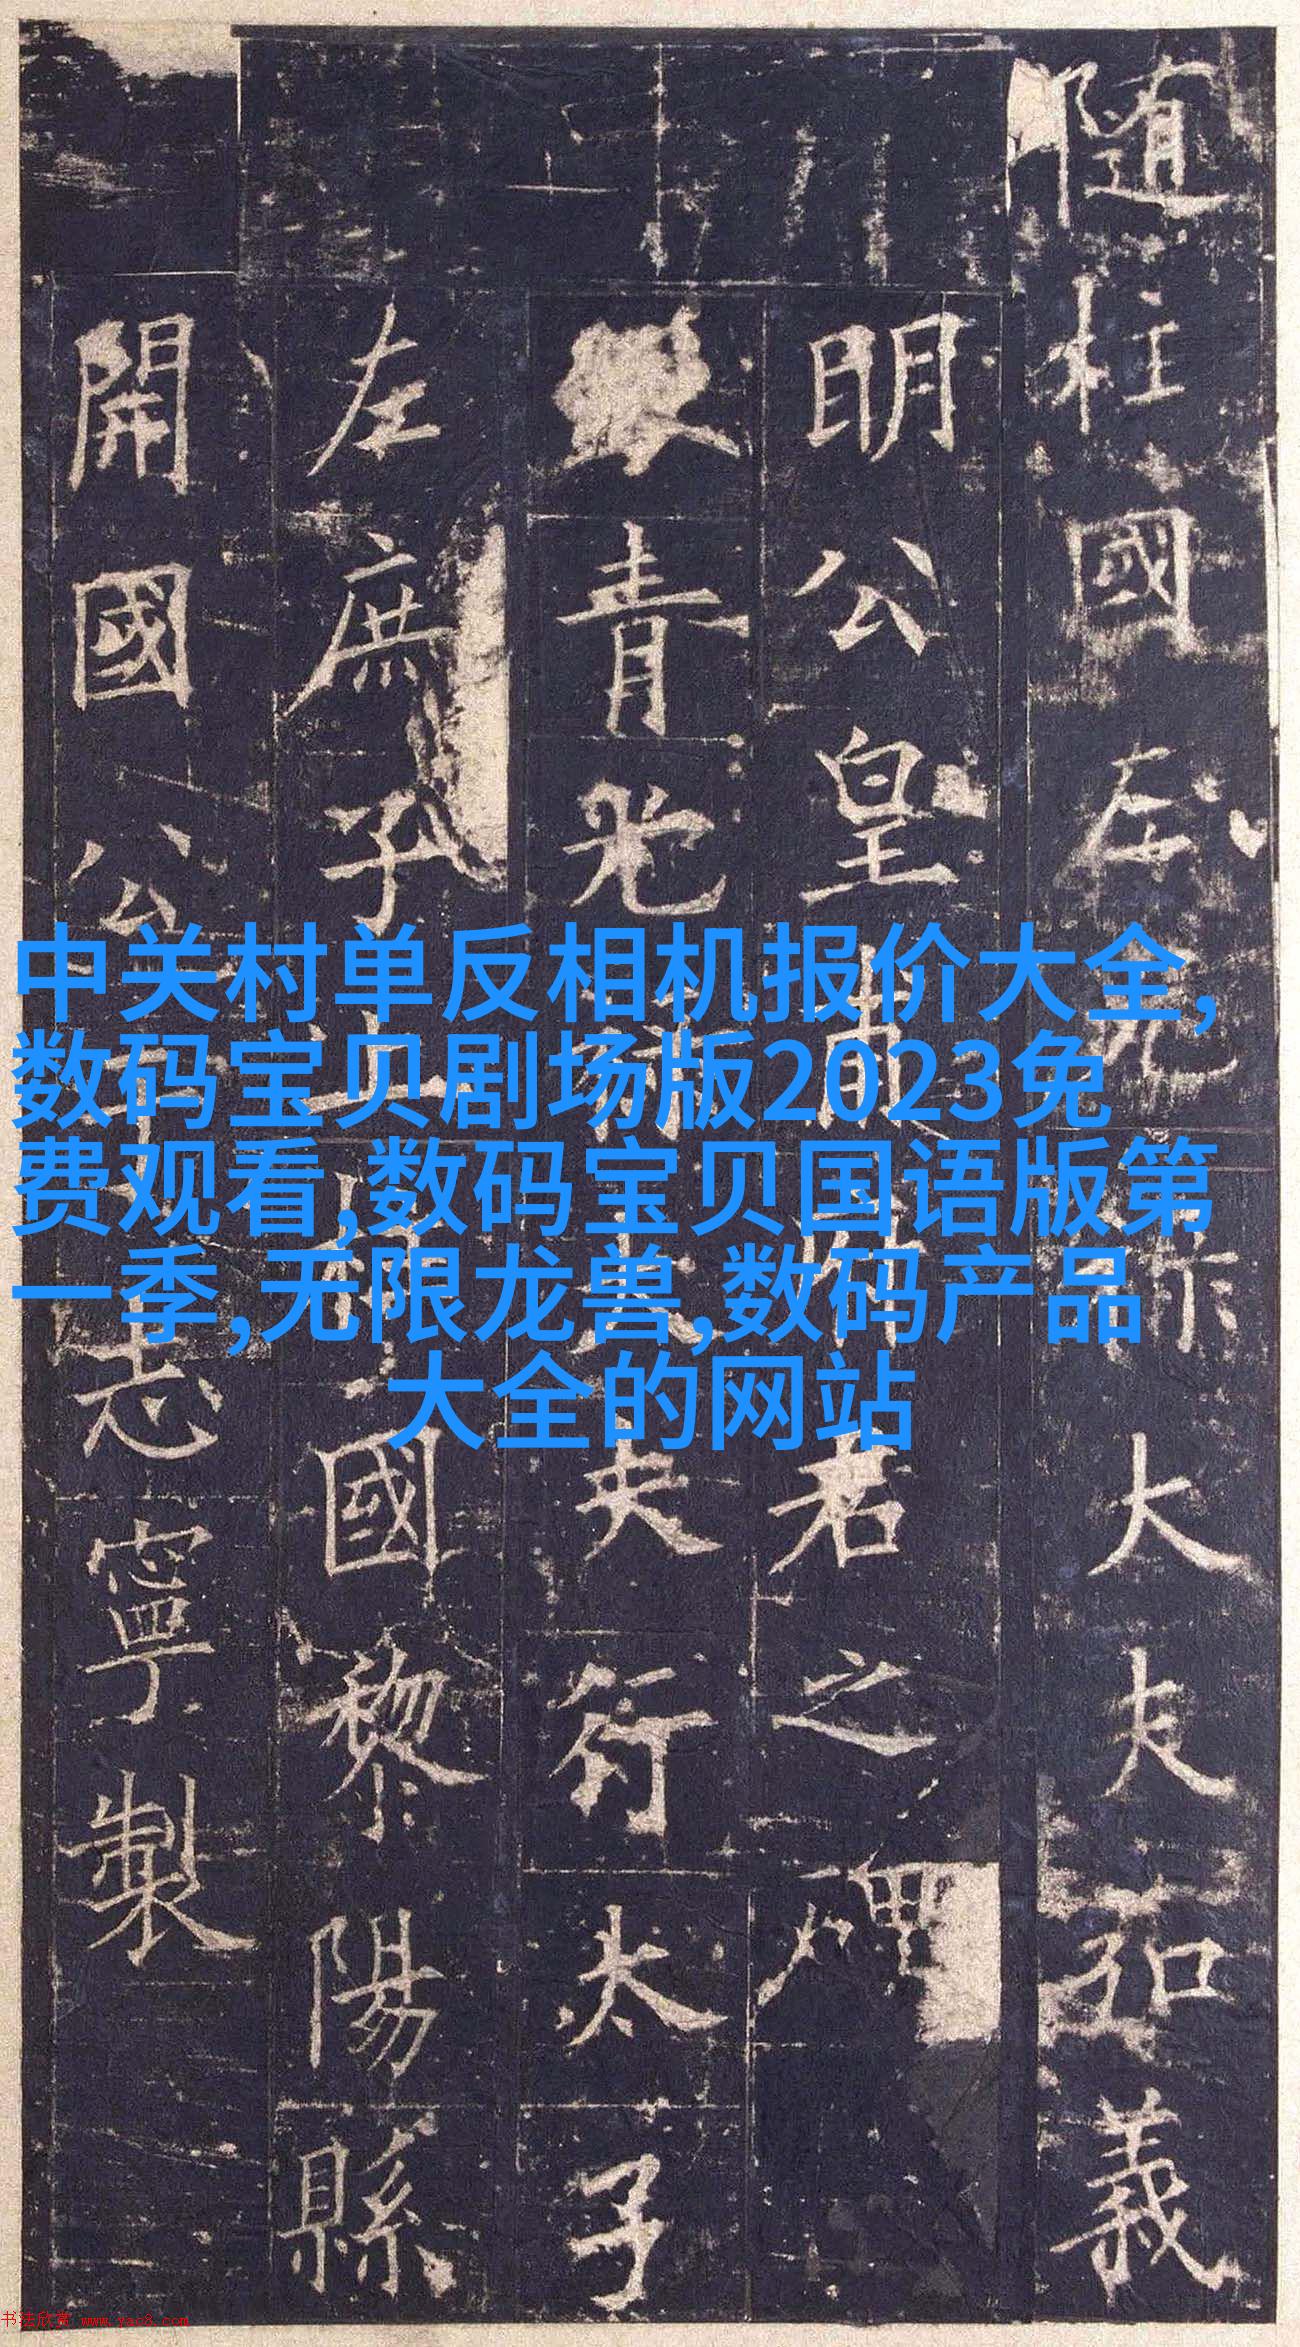 随柱國左光祿大夫弘義
明公皇甫府君之碑
銀青光祿大夫行太子
左庶子上柱國黎陽縣
開國公于志寧製
中关村单反相机报价大全,
数码宝贝剧场版2023免
费观看,数码宝贝国语版第
一季,无限龙兽,数码产品
大全的网站
书法欣赏 www.yac8.com